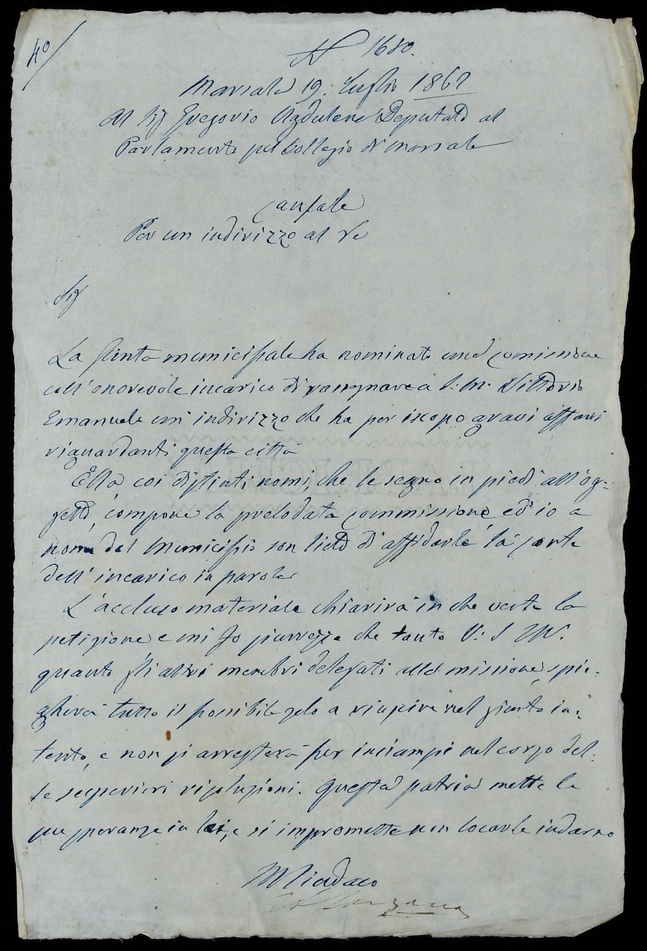 40/
N 1680.
Marsala 19. Luglio 1862
Al Sig Gregorio Ugdulena Deputato al
Parlamento pel Collegio di Marsala
Causale
Per un indirizzo al Re
Sig
La Giunta municipale ha nominato una comissione
coll'onorevole incarico di rassegnare a S: M: Vittorio
Emanuele un'indirizzo che ha per iscopo gravi affari
riguardanti questa città
Ella coi distinti nomi, che le segno in piedi all'og-
getto, compone la prelodata commissione ed io a
nome del Municipio son lieto d'affidarle la parte
dell'incarico in parola
L'accluso materiale chiarirà in che verte la
petizione e mi fo sicurezza che tanto V: S
quanto gli altri membri delegati alla missione, spie-
gherà tutto il possibile zelo a riuscire nel giusto in-
tento, e non si arresterà per inciampi nel corso del-
le risoluzioni. Questa patria mette le
sue speranze in lei, e si impromette non locarle indarno
Il Sindaco